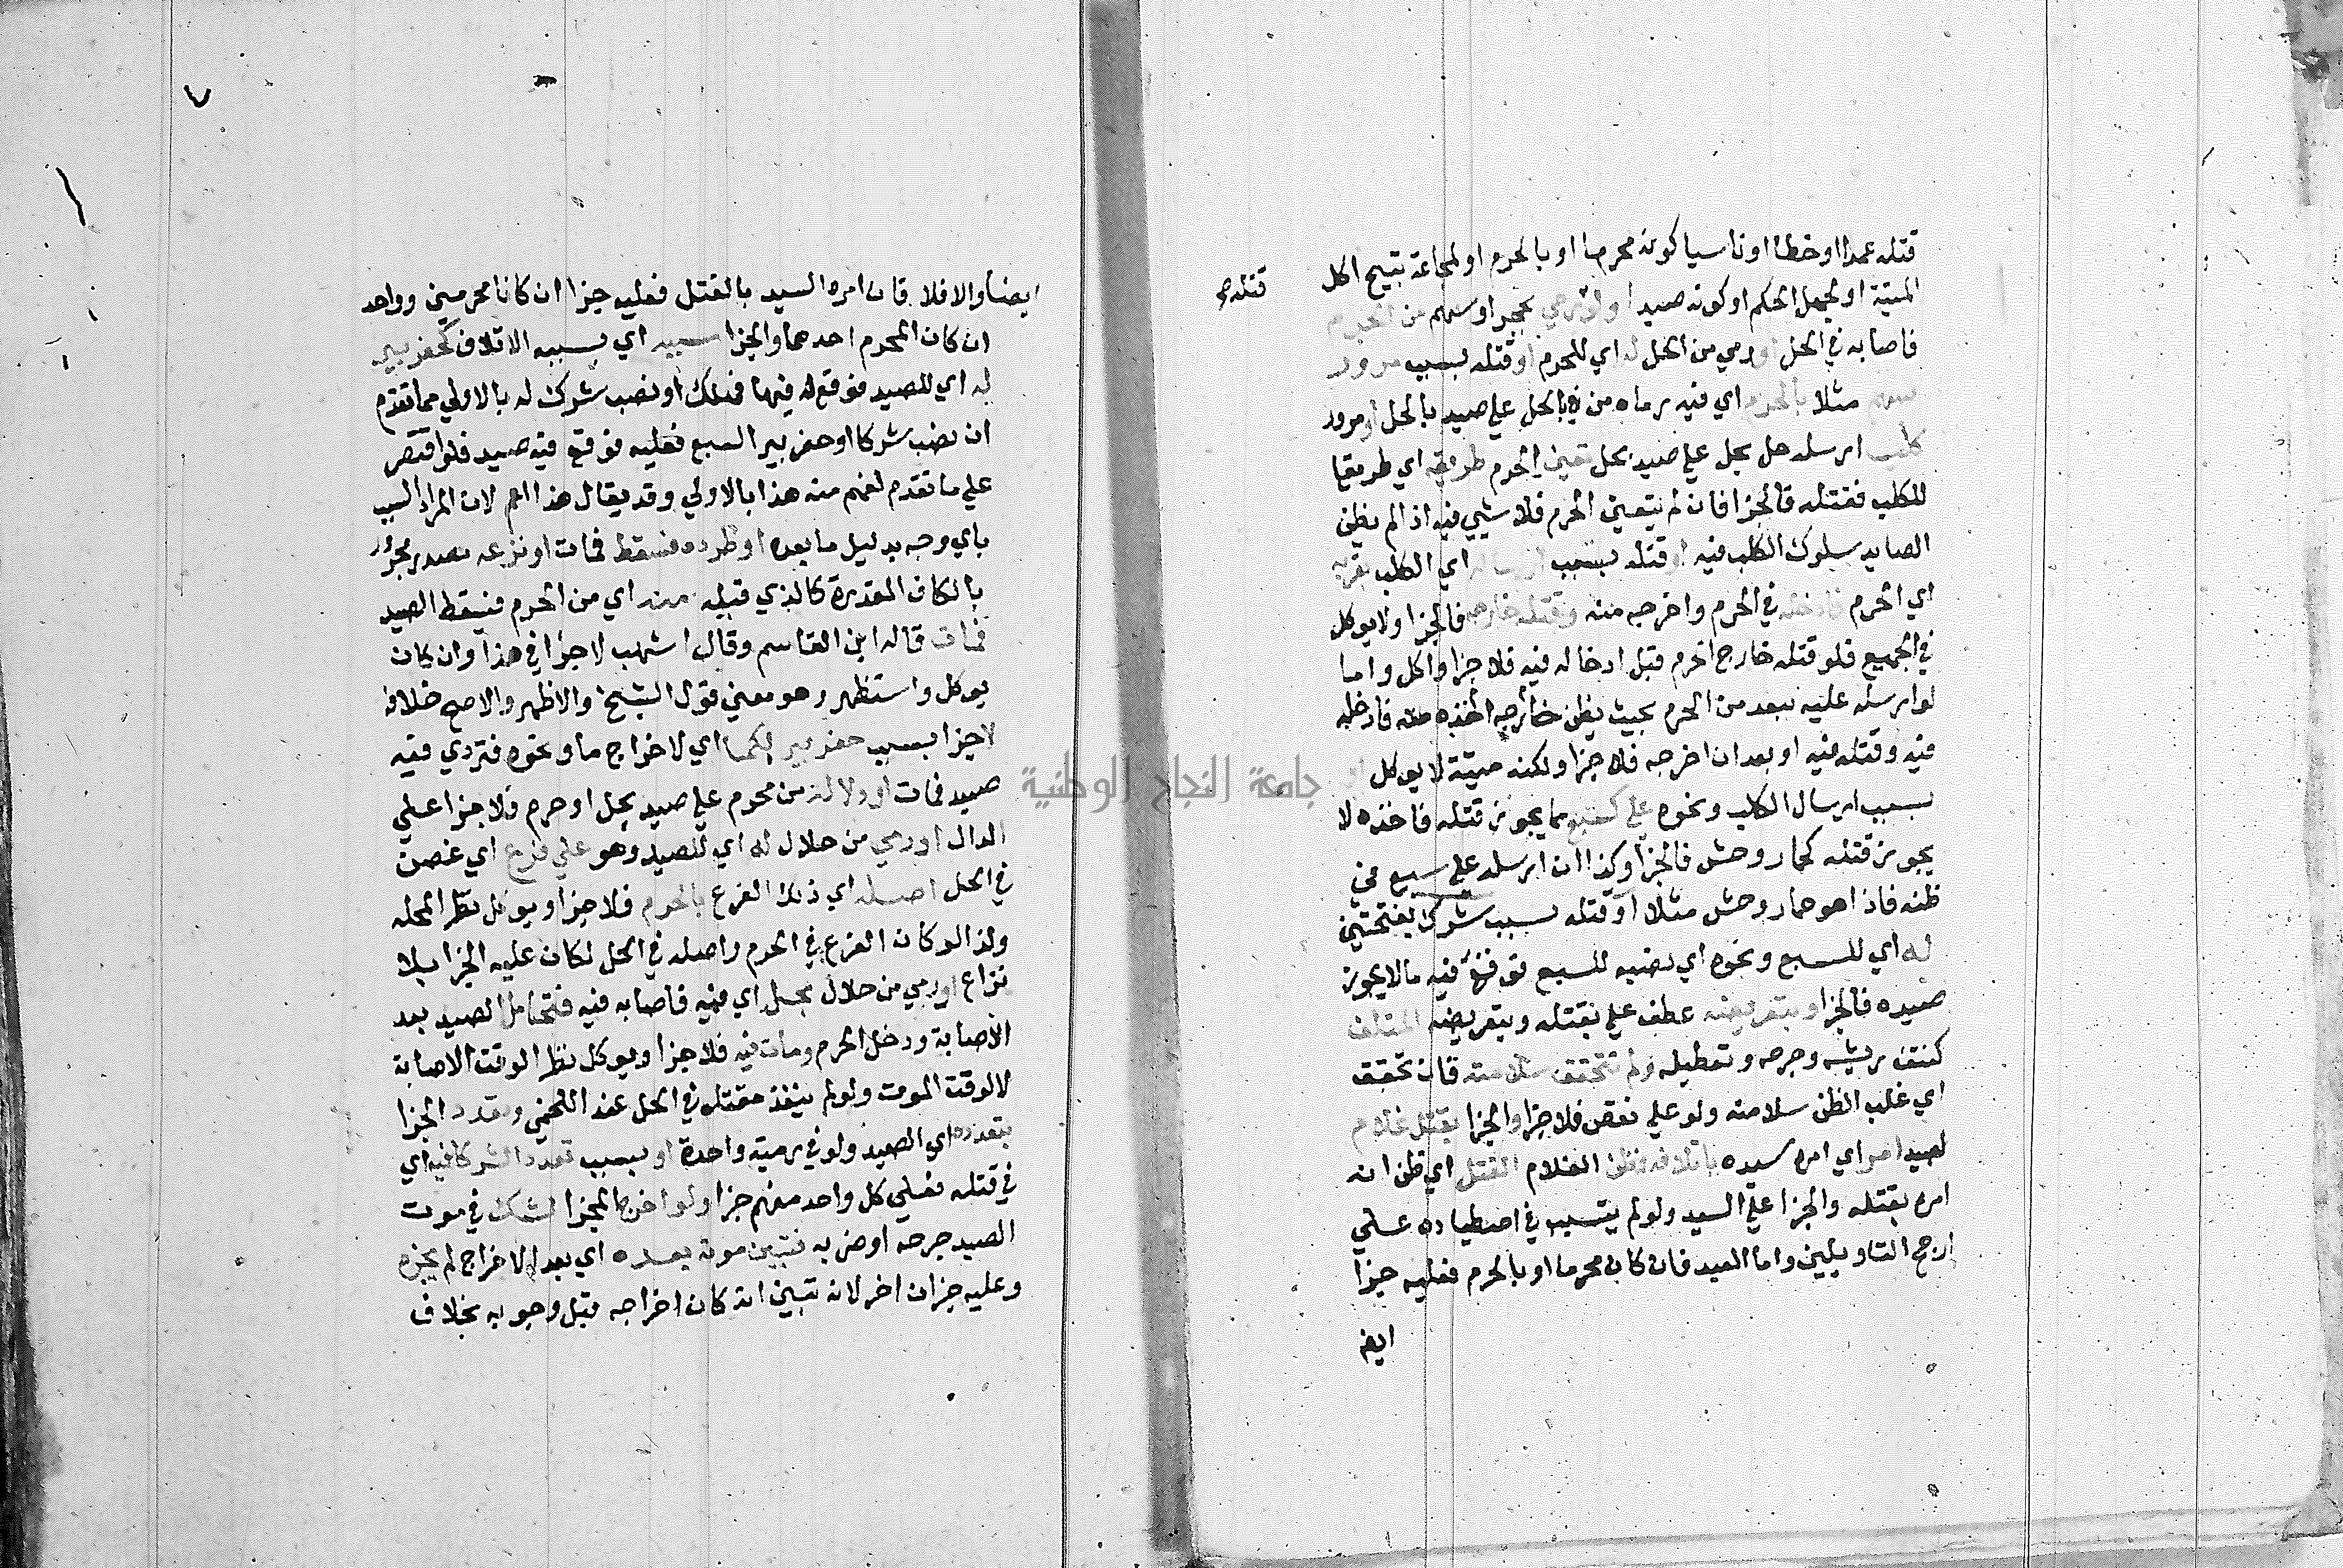 قتله عمدا او خطا او ناسيا كونه محرما او بالحرم او لمجاعة تبيح اكل
قتله صح
الميتة او لجهل الحكم او كونه صيدا او رمي بحجر او سهم من الحرم
فاصابه في الحل او رمي من الحل له اي للحرم او قتله بسبب مرور
سهم مثلا بالحرم اي فيه رماه من بالحل علي صيد بالحل او مرور
كلب ارسله حل بحل علي صيد بحل تعين الحرم طريقه اي طريقا
للكلب فقتله فالجزا فان لم يتعين الحرم فلا شيي فيه اذا لم يظن
الصايد سلوك الكلب فيه او قتله بسبب ارساله اي الكلب بقربه
اي الحرم فادخله في الحرم واخرجه منه وقتله خارجه فالجزا ولا يوكل
في الجميع فلو قتله خارج الحرم قبل ادخاله فيه فلا جزا واكل واما
لو ارسله عليه ببعد من الحرم بحيث يظن خارجه اخذه منه فادخله
فيه وقتله فيه او بعد ان اخرجه فلا جزا ولكنه ميتة لا يوكل او
بسبب ارسال الكلب ونحوه علي كسبع مما يجوز قتله فاخذه لا
يجوز قتله كحمار وحش فالجزا وكذا ان ارسله علي سبع في
ظنه فاذا هو حمار وحش مثلا او قتله بسبب شرك بفتحتين
له اي للسبع ونحوه اي نصبه للسبع فوقع فيه ما لا يجوز
صيده فالجزا وبتعريضه عطف علي بقتله وبتعريضه المتلف
كنتف ريشه وجرحه وتعطيله ولم تتحقق سلامته فان تحقق
اي غلب الظن سلامته ولو علي نقص فلا جزا والجزا بقتل غلام
لصيد امر اي امره سيده بافلاته فظن الغلام القتل اي ظن انه
امره بقتله والجزا علي السيد ولو لم يتسبب في اصطياده علي
ارجح التاويلين واما العبد فان كان محرما او بالحرم فعليه جزا
ايض
٧
ايضا والا فلا فان امره السيد بالقتل فعليه جزا ان كانا محرمين وواحد
ان كان المحرم احدهما والجزا بسببه اي بسببه الاتلاف كحفر بير
له اي للصيد فوقع فيها فهلك او نصب شرك له بالاولي مما تقدم
ان نصب شركا او حفر بير السبع فعليه فوقع فيه صيد فلو اقتصر
علي ما تقدم لفهم منه هذا بالاولي وقد يقال هذا اعم لان المراد السبب
باي وجه بدليل ما بعده او طرده فسقط فمات او فزعه مصدر مجرور
بالكاف المقدرة كالذي قبله منه اي من الحرم فسقط الصيد
فمات قاله ابن القاسم وقال اشهب لا جزا في هذا وان كان
يوكل واستظهر وهو معني قول الشيخ والاظهر والاصح خلافه
لا جزا بسبب حفر بير لكما اي لاخراج ما ونحوه فتردي فيه
صيد فمات او دلالة من محرم علي صيد بحل او حرم فلا جزا علي
الدال او رمي من حلال له اي للصيد وهو علي فرع اي غصن
في الحل اصله اي ذلك الفرع بالحرم فلا جزا ويوكل نظر المحله
ولذا لو كان الفرع في الحرم واصله في الحل لكان عليه الجزا بلا
نزاع او رمي من حلال بحل اي فيه فاصابه فيه فتحامل الصيد بعد
الاصابة ودخل الحرم ومات فيه فلا جزا ويوكل نظر الوقت الاصابة
لا لوقت الموت ولو لم ينفذ مقتله في الحل عند اللخمي وتعدد الجزا
بتعدده اي الصيد ولو في رمية واحدة او بسبب تعدد الشركا فيه اي
في قتله فعلي كل واحد منهم جزا ولو اخرج الجزا لشك في موت
الصيد جرحه او ضربه فتبين موته بعده اي بعد الاخراج لم يجزه
وعليه جزان اخر لانه تبين انه كان اخراجه قبل وجوبه بخلاف
جامعة النجاح الوطنية